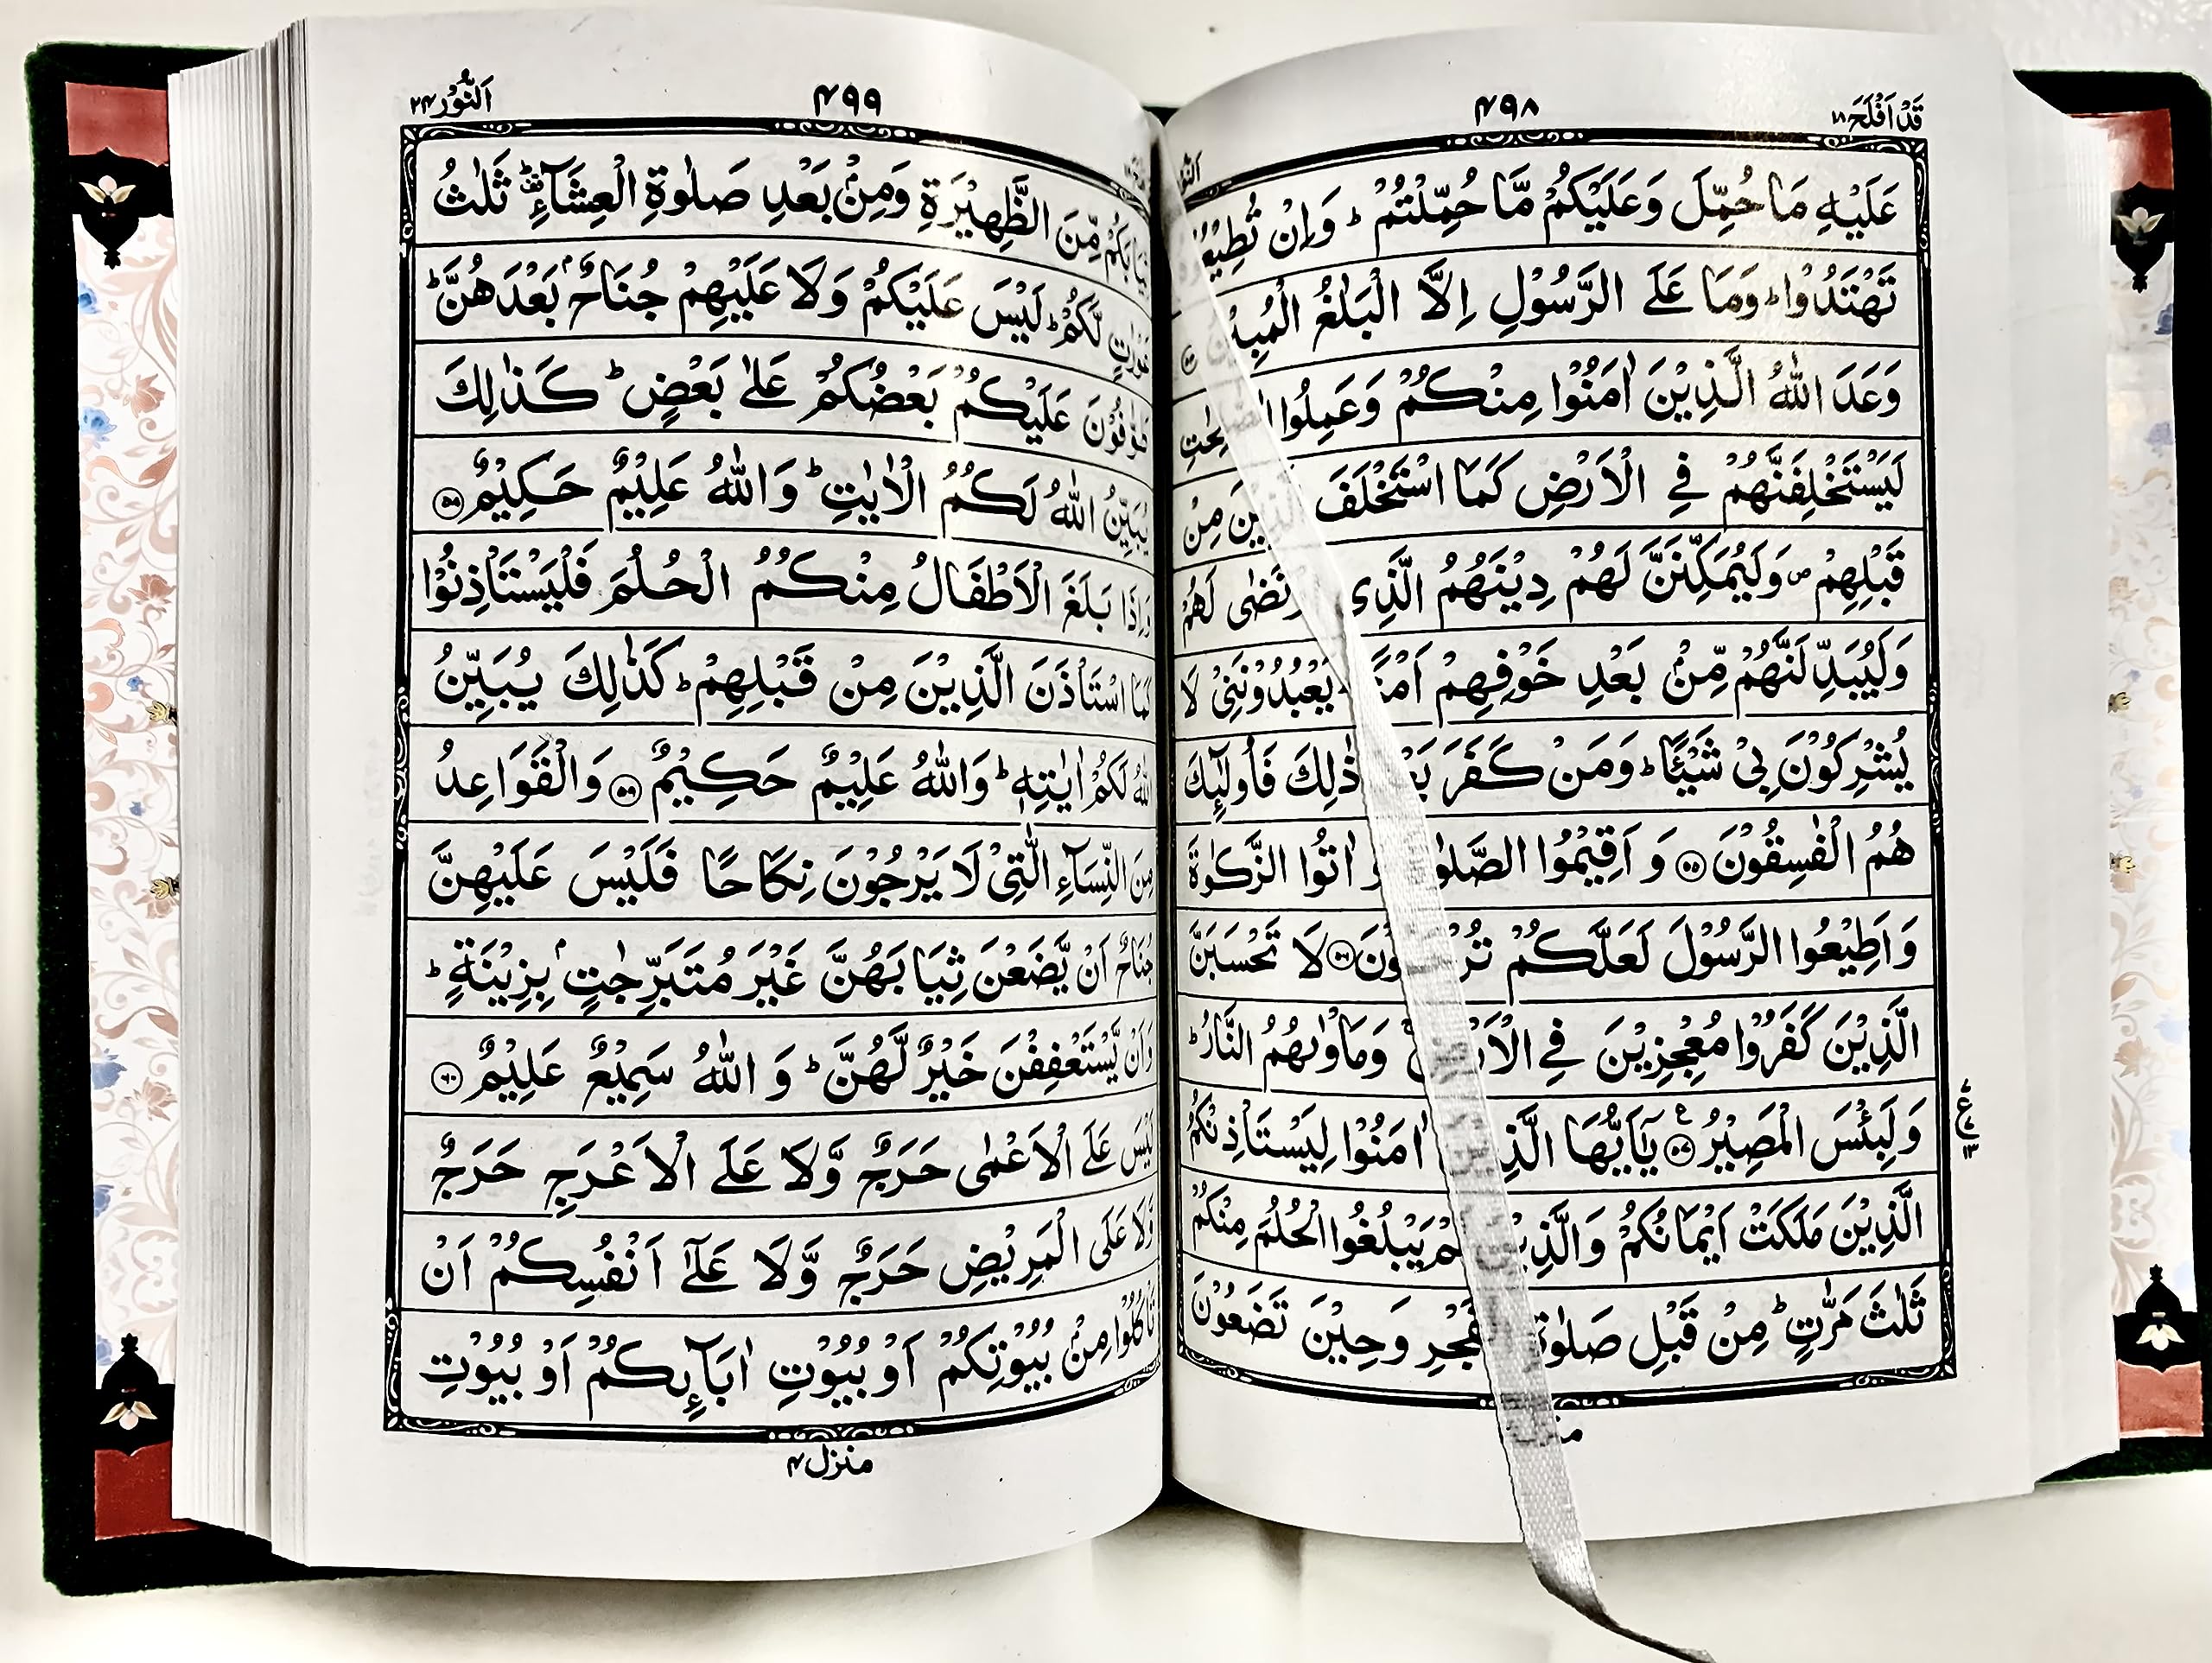 قَدْ اَفْلَحَ ١٨
۴۹۸
عَلَيْهِ مَا حُمِّلَ وَعَلَيْكُمْ مَّا حُمِّلْتُمْ ؕ وَاِنْ
تَهْتَدُوْا ؕ وَمَا عَلَى الرَّسُوْلِ اِلَّا الْبَلٰغُ الْمُبِيْنُ ﴿۵۴﴾
وَعَدَ اللّٰهُ الَّذِيْنَ اٰمَنُوْا مِنْكُمْ وَعَمِلُوا
لَيَسْتَخْلِفَنَّهُمْ فِي الْاَرْضِ كَمَا اسْتَخْلَفَ الَّذِيْنَ مِنْ
قَبْلِهِمْ ۪ وَلَيُمَكِّنَنَّ لَهُمْ دِيْنَهُمُ الَّذِي ارْتَضٰى لَهُمْ
وَلَيُبَدِّلَنَّهُمْ مِّنْۢ بَعْدِ خَوْفِهِمْ اَمْنًا ؕ يَعْبُدُوْنَنِيْ لَا
يُشْرِكُوْنَ بِيْ شَيْـًٔا ؕ وَمَنْ كَفَرَ بَعْدَ ذٰلِكَ فَاُولٰٓئِكَ
هُمُ الْفٰسِقُوْنَ ﴿۵۵﴾ وَ اَقِيْمُوا الصَّلٰوةَ وَ اٰتُوا الزَّكٰوةَ
وَاَطِيْعُوا الرَّسُوْلَ لَعَلَّكُمْ تُرْحَمُوْنَ ﴿۵۶﴾ لَا تَحْسَبَنَّ
الَّذِيْنَ كَفَرُوْا مُعْجِزِيْنَ فِي الْاَرْضِ ۚ وَمَاْوٰىهُمُ النَّارُ ؕ
وَلَبِئْسَ الْمَصِيْرُ ﴿۵۷﴾ يٰۤاَيُّهَا الَّذِيْنَ اٰمَنُوْا لِيَسْتَاْذِنْكُمُ
الَّذِيْنَ مَلَكَتْ اَيْمَانُكُمْ وَالَّذِيْنَ لَمْ يَبْلُغُوا الْحُلُمَ مِنْكُمْ
ثَلٰثَ مَرّٰتٍ ؕ مِنْ قَبْلِ صَلٰوةِ الْفَجْرِ وَحِيْنَ تَضَعُوْنَ
ع
۴۹۹
اَلنُّوْر ۲۴
مِّنَ الظَّهِيْرَةِ وَمِنْۢ بَعْدِ صَلٰوةِ الْعِشَآءِ ؕ ثَلٰثُ
عَوْرٰتٍ لَّكُمْ ؕ لَيْسَ عَلَيْكُمْ وَلَا عَلَيْهِمْ جُنَاحٌۢ بَعْدَهُنَّ ؕ
طَوّٰفُوْنَ عَلَيْكُمْ بَعْضُكُمْ عَلٰى بَعْضٍ ؕ كَذٰلِكَ
يُبَيِّنُ اللّٰهُ لَكُمُ الْاٰيٰتِ ؕ وَاللّٰهُ عَلِيْمٌ حَكِيْمٌ ﴿۵۸﴾
وَاِذَا بَلَغَ الْاَطْفَالُ مِنْكُمُ الْحُلُمَ فَلْيَسْتَاْذِنُوْا
كَمَا اسْتَاْذَنَ الَّذِيْنَ مِنْ قَبْلِهِمْ ؕ كَذٰلِكَ يُبَيِّنُ
اللّٰهُ لَكُمْ اٰيٰتِهٖ ؕ وَاللّٰهُ عَلِيْمٌ حَكِيْمٌ ﴿۵۹﴾ وَالْقَوَاعِدُ
مِنَ النِّسَآءِ الّٰتِيْ لَا يَرْجُوْنَ نِكَاحًا فَلَيْسَ عَلَيْهِنَّ
جُنَاحٌ اَنْ يَّضَعْنَ ثِيَابَهُنَّ غَيْرَ مُتَبَرِّجٰتٍۭ بِزِيْنَةٍ ؕ
وَاَنْ يَّسْتَعْفِفْنَ خَيْرٌ لَّهُنَّ ؕ وَ اللّٰهُ سَمِيْعٌ عَلِيْمٌ ﴿۶۰﴾
لَيْسَ عَلَى الْاَعْمٰى حَرَجٌ وَّلَا عَلَى الْاَعْرَجِ حَرَجٌ
وَّلَا عَلَى الْمَرِيْضِ حَرَجٌ وَّلَا عَلٰۤى اَنْفُسِكُمْ اَنْ
تَاْكُلُوْا مِنْۢ بُيُوْتِكُمْ اَوْ بُيُوْتِ اٰبَآئِكُمْ اَوْ بُيُوْتِ
منزل ۴